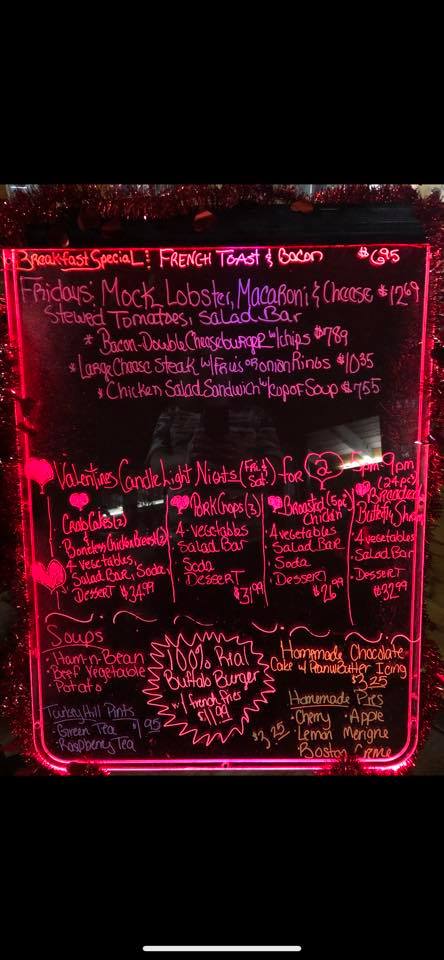 Breakfast Special: French Toast & Bacon $6.95
Fridays: Mock Lobster, Macaroni & Cheese $12.69
Stewed Tomatoes, Salad Bar
* Bacon-Double Cheeseburger w/chips $7.89
* Large Cheese Steak w/Fries or Onion Rings $10.35
* Chicken Salad Sandwich w/ Kup of Soup $7.55
Valentines Candle Light Nights (Fri. & Sat) for 2 5pm-9pm
Crab Cakes (2)
&
Boneless Chicken Breast (2)
4 Vegetables
Salad Bar, Soda
Dessert $34.99
Pork Chops (3)
4 Vegetables
Salad Bar
Soda
Dessert
$31.99
Broasted (5pc)
Chicken
4 vegetables
Salad Bar
Soda
Dessert
$26.99
(24 pc)
Breaded
Butterfly
4 vegetables
Salad Bar
Dessert
$32.99
Soups
Ham-n-Bean
Beef Vegetable
Potato
Turkey Hill Pints
Green Tea
Raspberry Tea
$1.95
100% Real
Buffalo Burger
w/ french fries
$11.99
Homemade Chocolate
Cake w/ Peanut Butter Icing
$3.25
Homemade Pies
Cherry Apple
Lemon Merigne
Boston Creme
$3.25